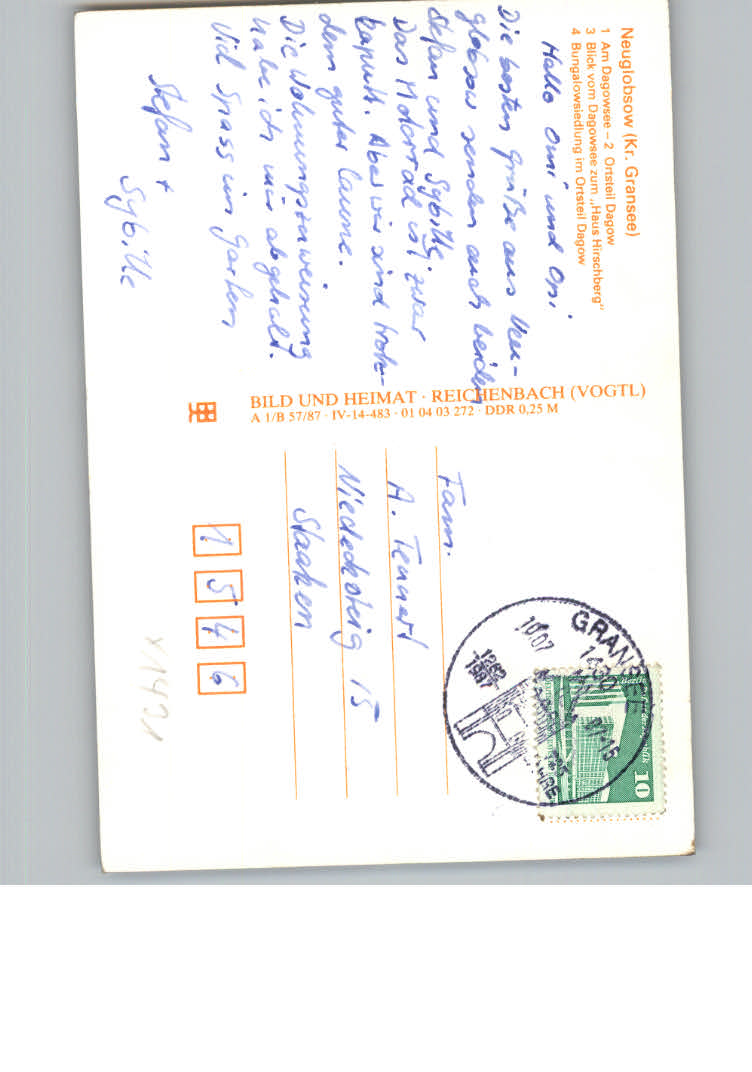 Neuglobsow (Kr. Gransee)
1 Am Dagowsee – 2 Ortsteil Dagow
3 Blick vom Dagowsee zum „Haus Hirschberg“
4 Bungalowsiedlung im Ortsteil Dagow
Hallo Omi und Opi!
Die besten Grüße aus Neu-
globsow senden euch beiden
Stefan und Sybille.
Das Motorrad ist zwar
kaputt. Aber wir sind trotz-
dem guter Laune.
Die Wohnungszuweisung
habe ich mir abgeholt.
Viel Spass im Garten
Stefan +
Sybille
BILD UND HEIMAT · REICHENBACH (VOGTL)
A 1/B 57/87 · IV-14-483 · 01 04 03 272 · DDR 0,25 M
Fam.
A. Tennert
Niedersteig 15
Staaken
1546
GRANSEE
1430
10.07
-15
1262
1987
725
JAHRE
10
Y1421